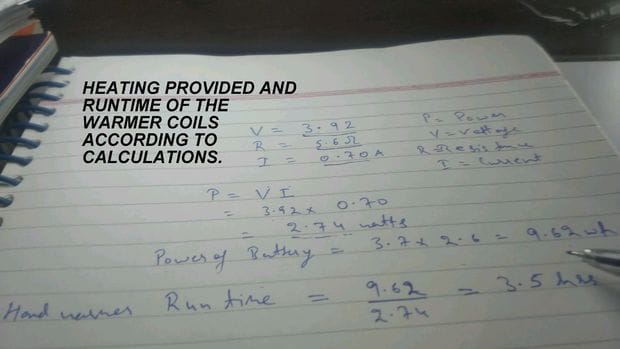 HEATING PROVIDED AND
RUNTIME OF THE
WARMER COILS
ACCORDING TO
CALCULATIONS.
V = 3.92
R = 5.6 Ω
I = 0.70 A
P = Power
V = Voltage
R = Resistance
I = Current
P = V I
= 3.92 x 0.70
= 2.74 watts
Power of Battery = 3.7 x 2.6 = 9.62 wh
Hand warmer Run time = 9.62 / 2.74 = 3.5 hrs